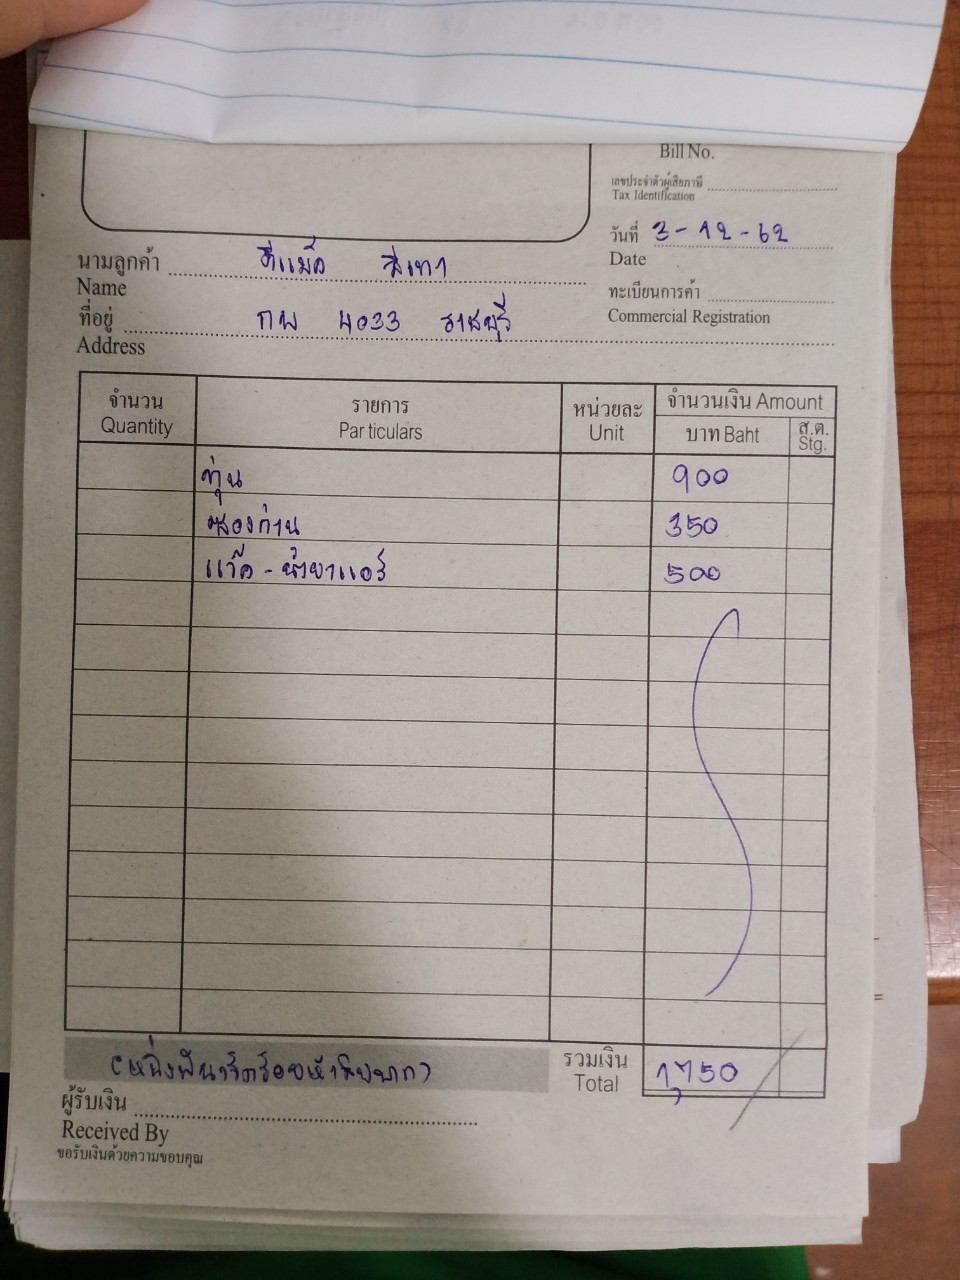 Bill No.
เลขประจำตัวผู้เสียภาษี
Tax Identification
วันที่ 3-12-62
Date
นามลูกค้า ดีแม็ค สีเทา
Name
ทะเบียนการค้า
Commercial Registration
ที่อยู่ กพ 4033 ราชบุรี
Address
จำนวน รายการ หน่วยละ จำนวนเงิน Amount
Quantity Particulars Unit บาท Baht ส.ต. Stg.
ทุ่น 900
ซองถ่าน 350
แว๊ค - น้ำยาแอร์ 500
(หนึ่งพันเจ็ดร้อยห้าสิบบาท) รวมเงิน 1,750
Total
ผู้รับเงิน
Received By
ขอรับเงินด้วยความขอบคุณ